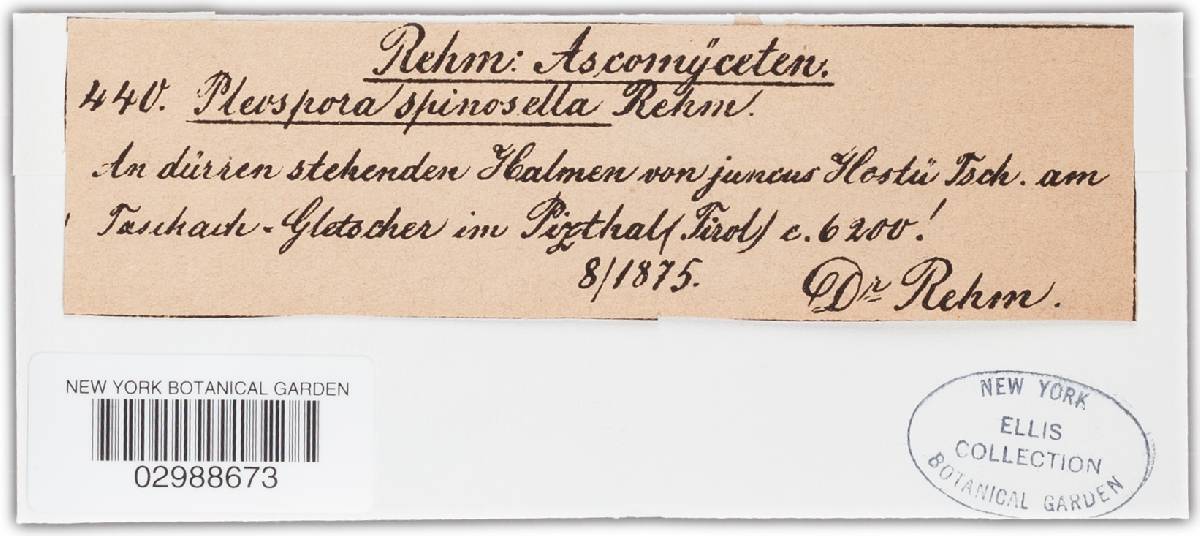 Rehm: Ascomÿceten.
440. Pleospora spinosella Rehm.
An dürren stehenden Halmen von juncus Hostii Tsch. am
Taschach-Gletscher im Pizthal (Tirol) c. 6200!
8/1875. Dr Rehm.
NEW YORK BOTANICAL GARDEN
02988673
NEW YORK
ELLIS
COLLECTION
BOTANICAL GARDEN